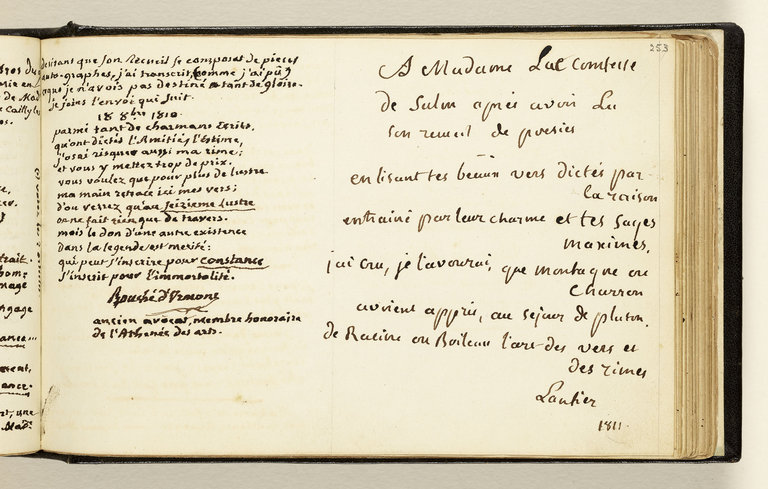 desirant que son Recueil se composat de pieces
auto-graphes, j'ai transcrit, comme j'ai pû,
que je n'avois pas destiné a tant de gloire.
je joins l'envoi qui suit.
18 8bre 1810.
parmi tant de charmans Ecrits,
qu'ont dictés l'Amitié, l'Estime,
j'osai risquer aussi ma rime;
et vous y mettez trop de prix.
vous voulez que pour plus de lustre
ma main retrace ici mes vers;
d'ou verrez qu'au seizieme lustre
on ne fait rien que de travers.
mais le don d'une autre existence
dans la legende est merité:
qui peut s'inscrire pour constance
s'inscrit pour l'immortalité.
Bouché d'Urmont
ancien avocat, membre honoraire
de l'Athenée des arts.
253
A Madame La Comtesse
de Salm après avoir lu
son recueil de poesies
en lisant tes beaux vers dictés par
la raison
entrainé par leur charme et tes sages
maximes,
j'ai cru, je l'avourai, que montagne ou
Charron
avoient appris, au sejour de pluton,
de Racine ou Boileau l'art des vers et
des rimes
Lantier
1811.